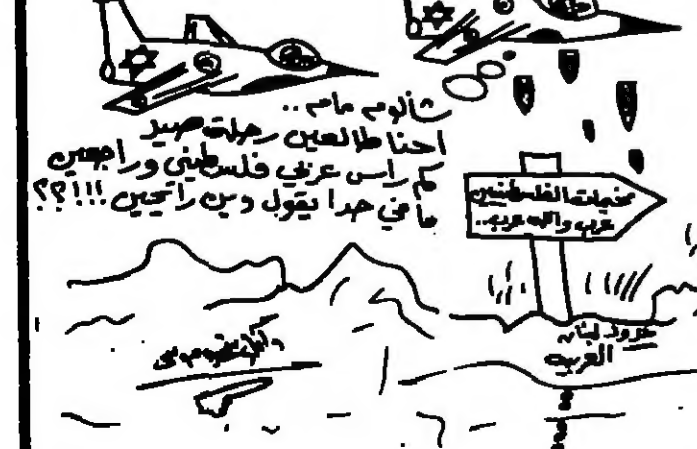 شالوم مام ..
احنا طالعين رحلة صيد
كم راس عربي فلسطيني وراجعين
ما في حدا يقول وين رايحين !!!؟؟
مخيمات الفلسطينيين
عرب والله عرب..
حدود لبنان
العربي